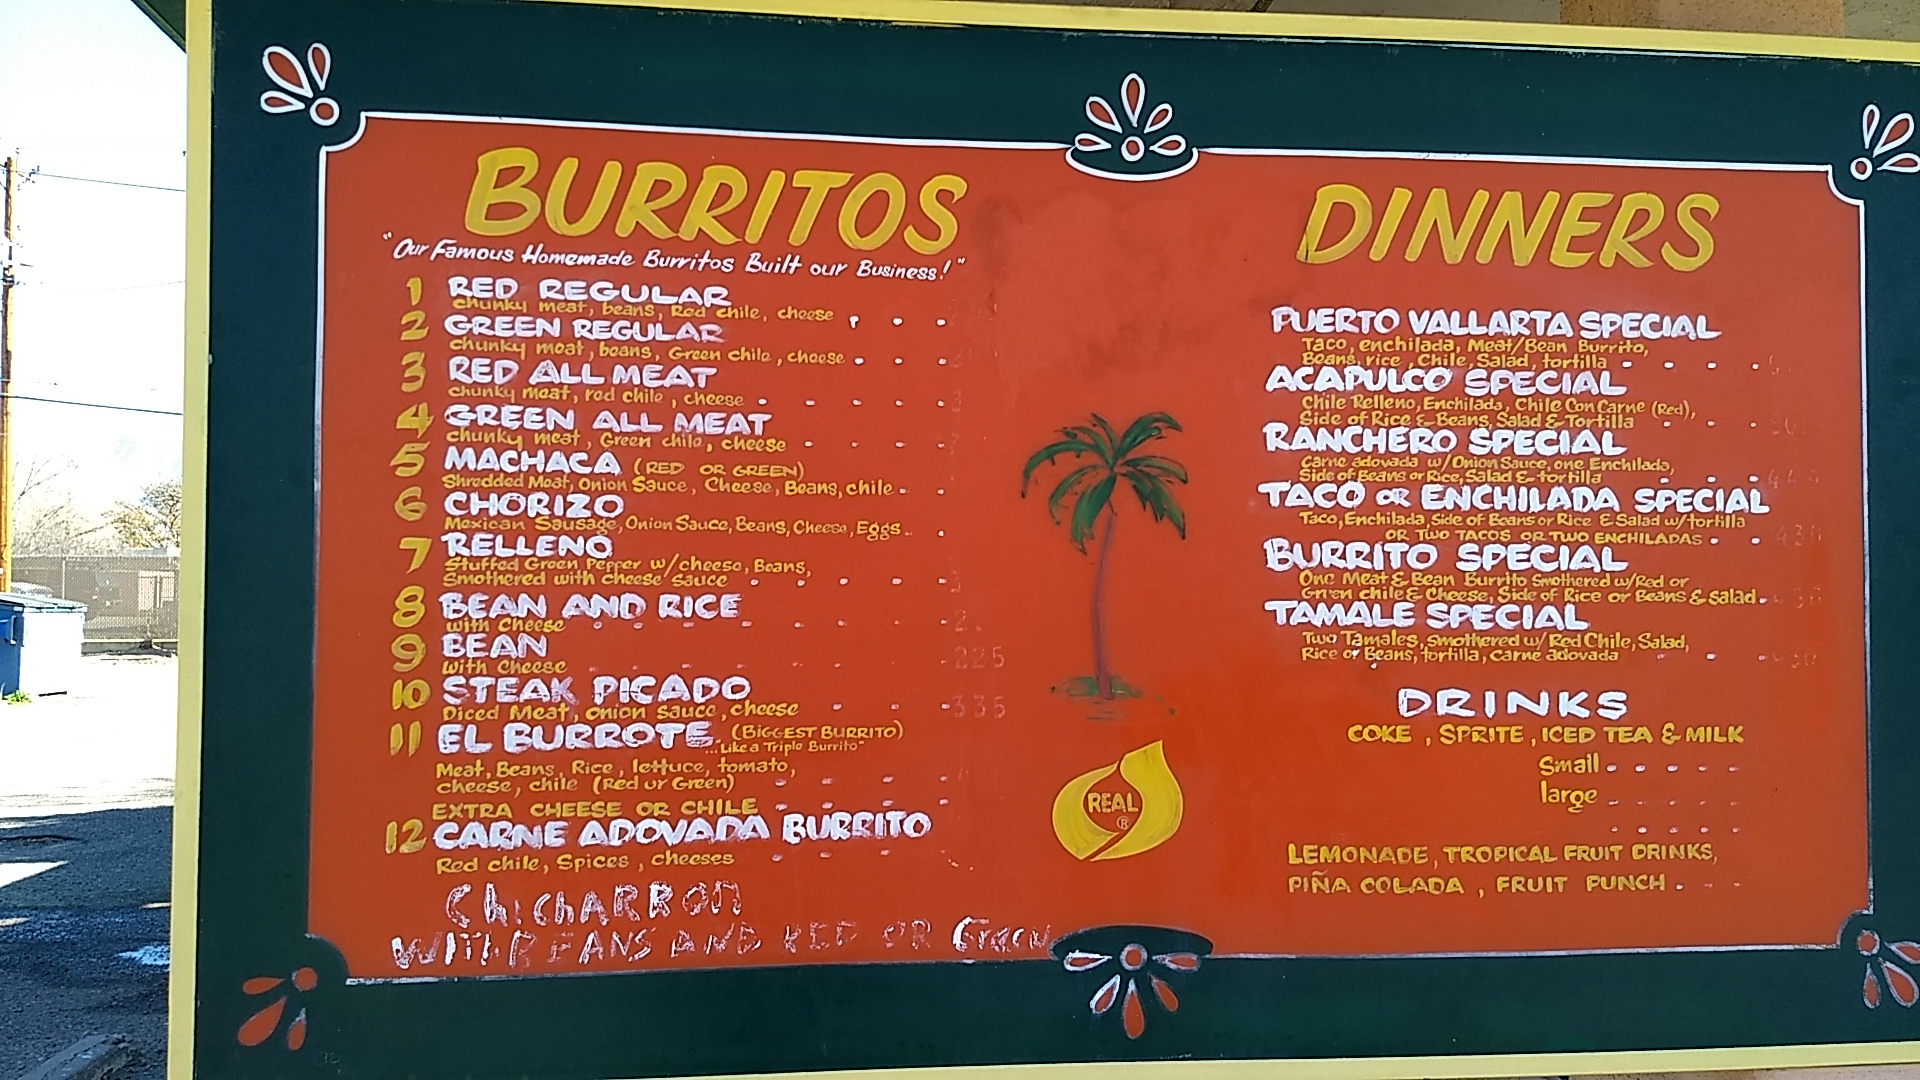 BURRITOS
"Our Famous Homemade Burritos Built our Business!"
1 RED REGULAR
chunky meat, beans, Red chile, cheese
2 GREEN REGULAR
chunky meat, beans, Green chile, cheese
3 RED ALL MEAT
chunky meat, red chile, cheese
4 GREEN ALL MEAT
chunky meat, Green chile, cheese
5 MACHACA (RED OR GREEN)
Shredded Meat, Onion Sauce, Cheese, Beans, chile
6 CHORIZO
Mexican Sausage, Onion Sauce, Beans, Cheese, Eggs
7 RELLENO
Stuffed Green Pepper w/cheese, Beans,
Smothered with cheese sauce
8 BEAN AND RICE
with Cheese
9 BEAN
with Cheese 225
10 STEAK PICADO
Diced Meat, onion sauce, cheese 335
11 EL BURROTE (BIGGEST BURRITO)
..."Like a Triple Burrito"
Meat, Beans, Rice, lettuce, tomato,
cheese, chile (Red or Green)
EXTRA CHEESE OR CHILE
12 CARNE ADOVADA BURRITO
Red chile, Spices, cheeses
ChichARRON
WITH BEANS AND RED OR GrEEN
REAL ®
DINNERS
PUERTO VALLARTA SPECIAL
Taco, enchilada, Meat/Bean Burrito,
Beans, rice, Chile, Salad, tortilla
ACAPULCO SPECIAL
Chile Relleno, Enchilada, Chile Con Carne (Red),
Side of Rice & Beans, Salad & Tortilla
RANCHERO SPECIAL
Carne adovada w/Onion Sauce, one Enchilada,
Side of Beans or Rice, Salad & tortilla
TACO OR ENCHILADA SPECIAL
Taco, Enchilada, Side of Beans or Rice & Salad w/tortilla
OR TWO TACOS OR TWO ENCHILADAS
BURRITO SPECIAL
One Meat & Bean Burrito Smothered w/Red or
Green chile & Cheese, Side of Rice or Beans & Salad
TAMALE SPECIAL
Two Tamales, smothered w/ Red Chile, Salad,
Rice or Beans, tortilla, carne adovada
DRINKS
COKE, SPRITE, ICED TEA & MILK
Small
large
LEMONADE, TROPICAL FRUIT DRINKS,
PIÑA COLADA, FRUIT PUNCH